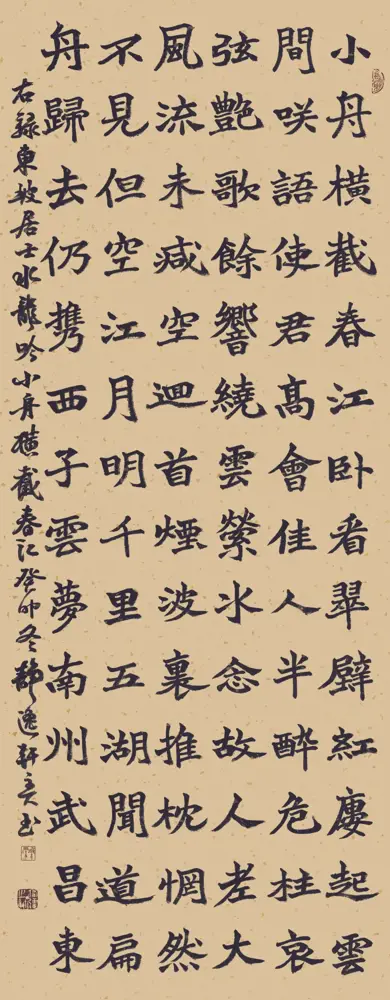 小舟橫截春江卧看翠壁紅廔起雲
間咲語使君髙會佳人半醉危柱哀
弦艷歌餘響繞雲縈水念故人老大
風流未减空迴首煙波裏推枕惘然
不見但空江月明千里五湖聞道扁
舟歸去仍携西子雲夢南州武昌東
右錄東坡居士水龍吟小舟橫截春江癸卯冬靜逸軒書